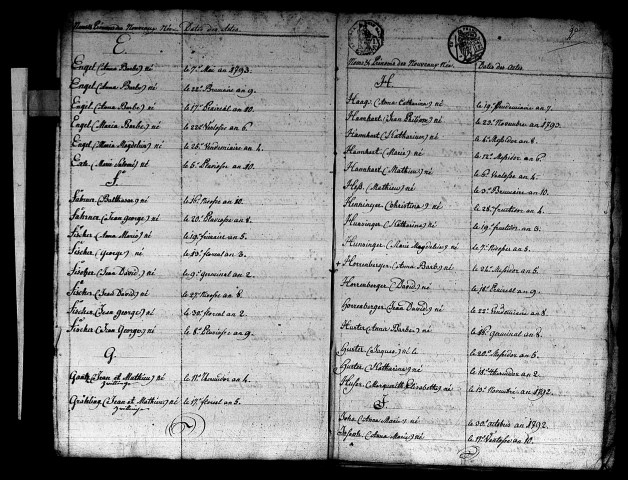 Noms & Prénoms des Nouveaux Nés. Dates des Actes.
E.
Engel (Anna Barbe) né le 7e Mai an 1793.
Engel (Anna Barbe) né le 22e Brumaire an 9.
Engel (Anna Barbe) né le 17e Prairéal an 10.
Engel (Maria Barbe) né le 22e Ventose an 6.
Engel (Maria Magdelin) né le 26e Vendemiaire an 4.
(Marie Salomé) né le 5e Pluviose an 10.
F.
Fahrner (Balthasar) né le 16e Nivose an 10.
Fahrner (Jean George) né le 20e Pluviose an 8.
Fischer (Anna Maria) né le 19e frimaire an 5.
Fischer (George) né le 23e floreal an 3.
Fischer (Jean David) né le 9e germinal an 2.
Fischer (Jean David) né le 27e Nivose an 8.
Fischer (Jean george) né le 30e floreal an 2.
Fischer (Jean George) né le 6e Pluviose an 9.
G.
(Jean et Mathieu) né le 11e Thermidor an 4.
(Jean et Mathieu) né le 17e floreal an 5.
Noms & Prénoms des Nouveaux Nés. Dates des Actes.
H.
Haag (Anna Catharina) né le 19e Vendemiaire an 7.
Hamhart (Jean Philippe) né le 23e Novembre an 1793.
Hamhart (Katharina) né le 4e Messidor an 8.
Hamhart (Maria) né le 12e Messidor an 6.
Hamhart (Mathieu) né le 6e Ventose an 4.
Heß (Mathieu) né le 3e Brumaire an 10.
Henninger (Christina) né le 28e fructidor an 4.
Hunsinger (Katharina) né le 19e fructidor an 3.
Hunsinger (Maria Magdelin) né le 7e Nivose an 5.
+ Horrenberger (Anna Barb) né le 24e Messidor an 5.
Horrenberger (David) né le 18e Prairéal an 7.
Horrenberger (Jean David) né le 22e Vendemiaire an 8.
Hurter (Anna Barbe) né le 16e germinal an 8.
Hurter (Jacques) né le 20e Messidor an 5.
Hurter (Katharina) né le 18e thermidor an 2.
(Marguerite Elisabethe) né le 13e Novembre an 1792.
J.
(Anna Maria) né le 30e octobre an 1792.
(Anna Marie) né le 17e Ventose an 10.